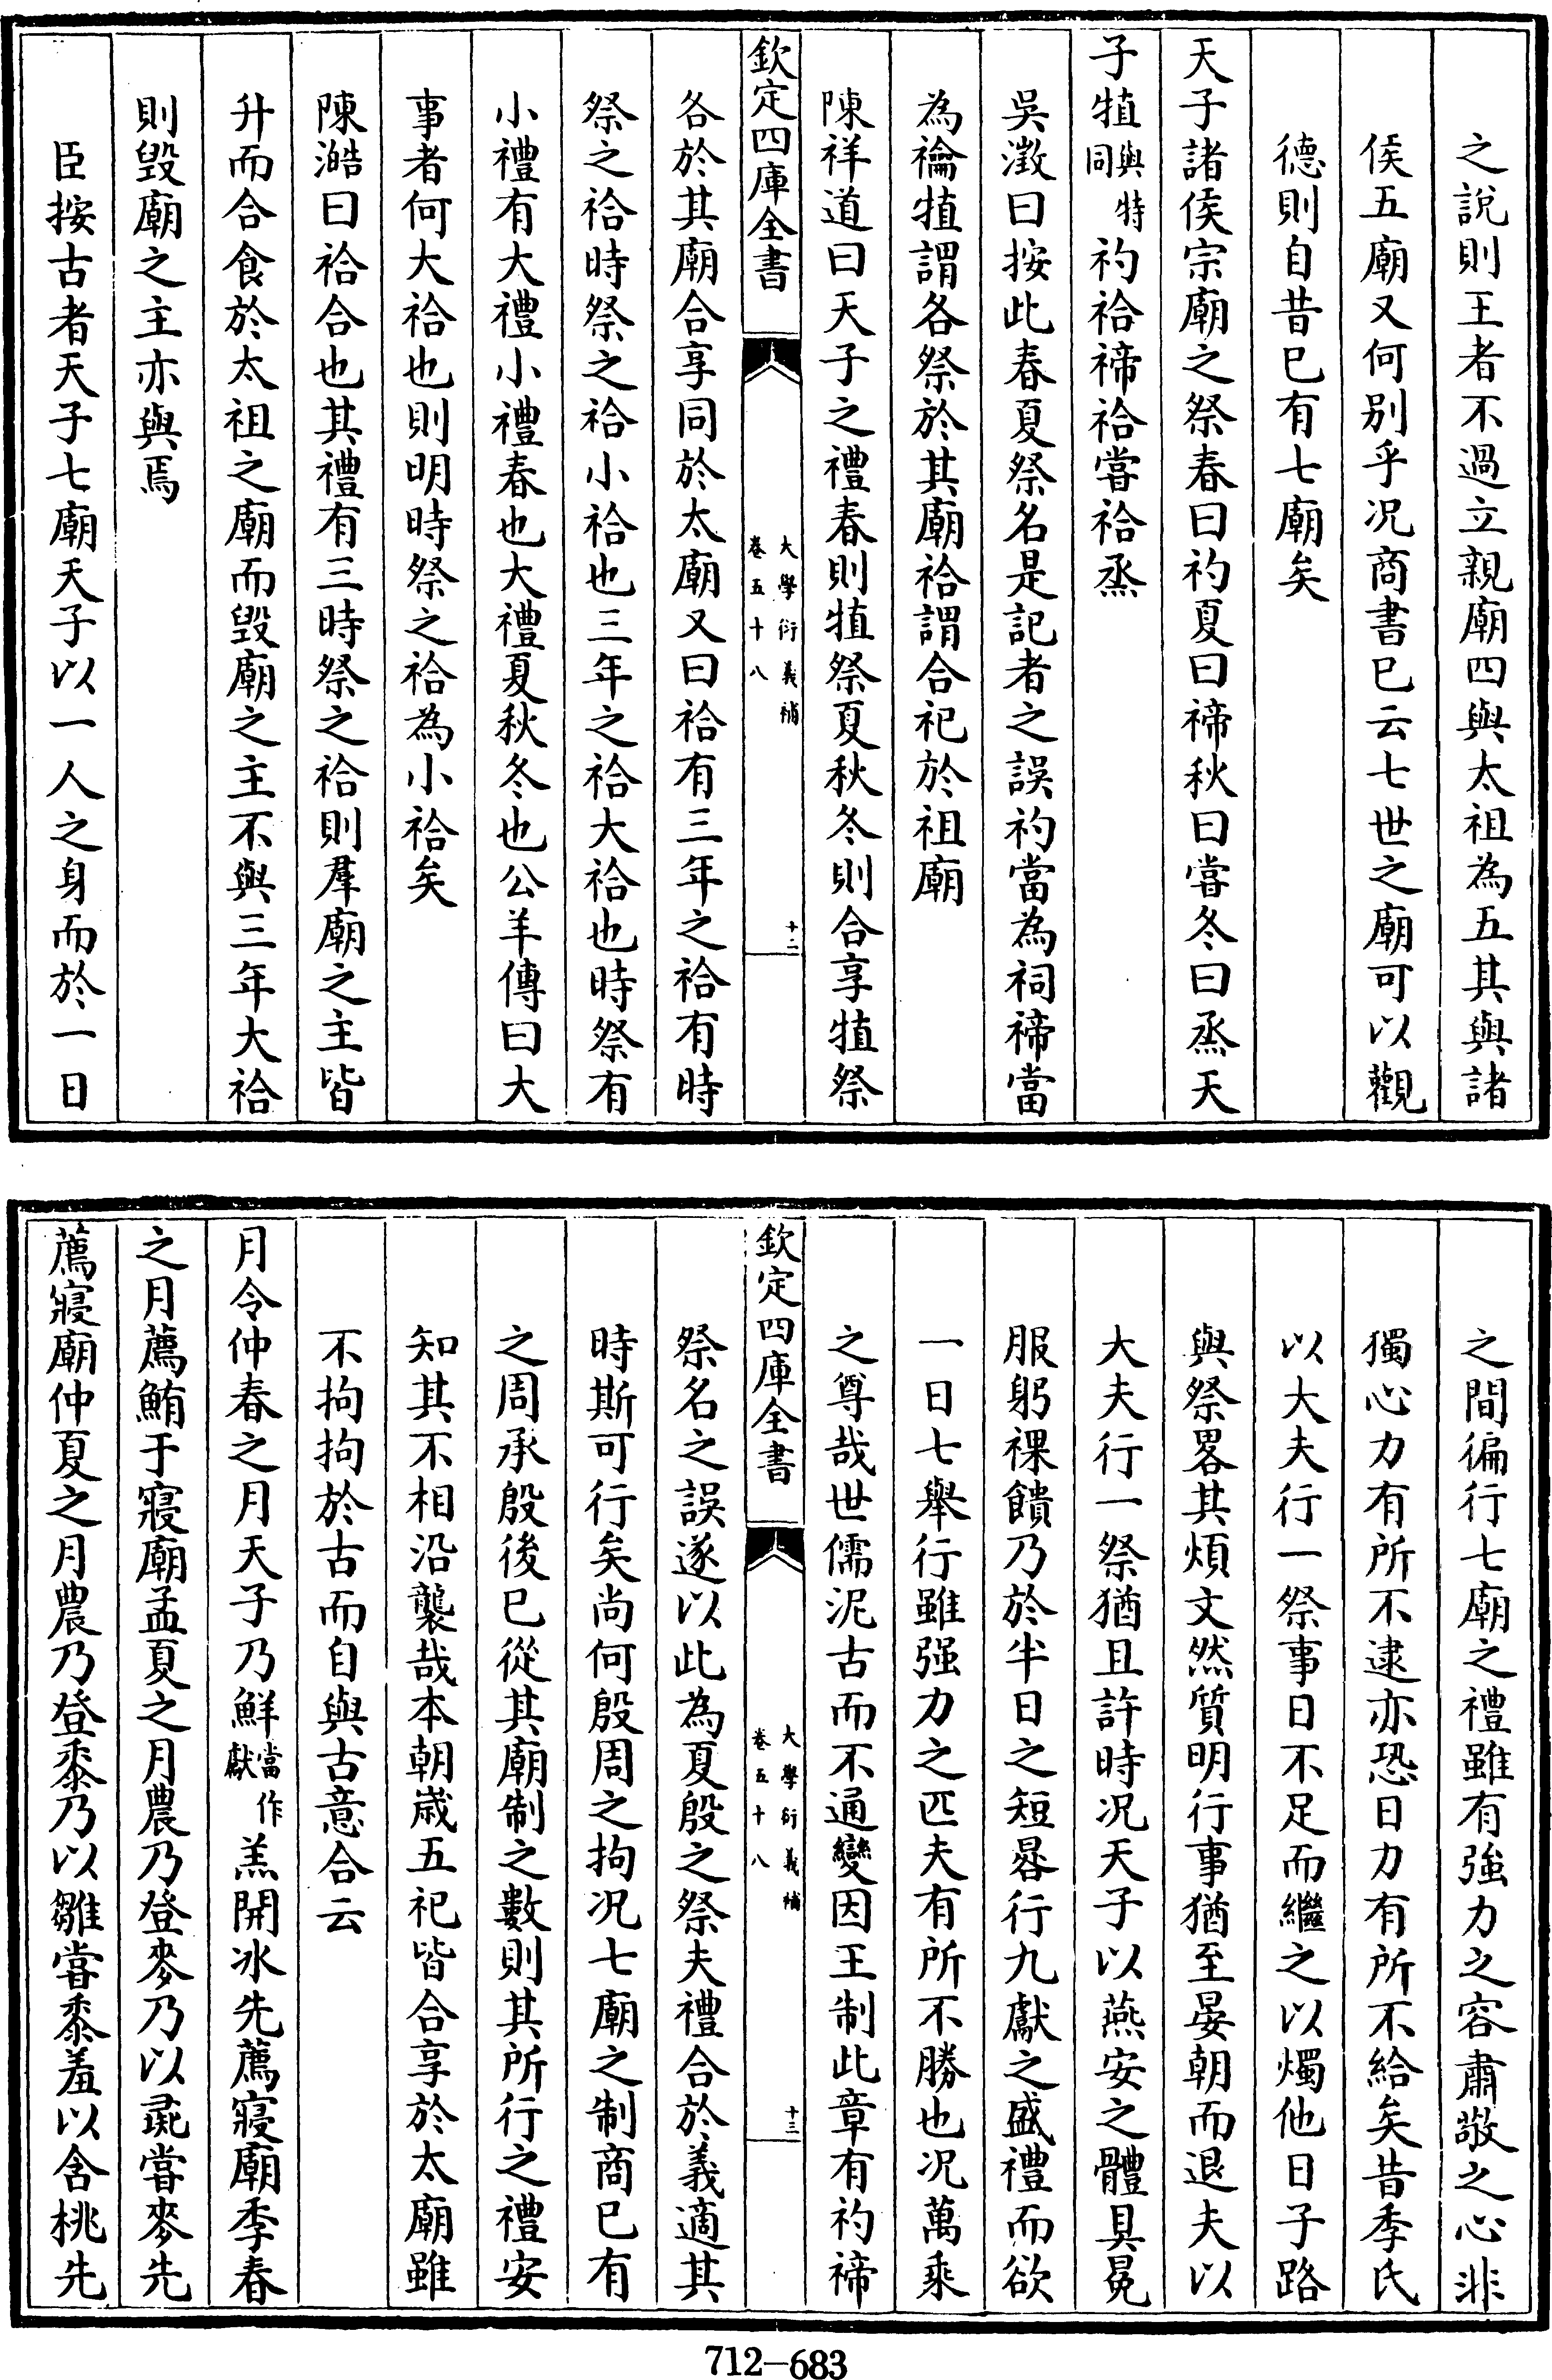 之說則王者不過立親廟四與太祖為五其與諸
侯五廟又何别乎况商書已云七世之廟可以觀
德則自昔已有七廟矣
天子諸侯宗廟之祭春曰礿夏曰禘秋曰嘗冬曰烝天
子犆與特同礿祫禘祫嘗祫烝
吳澂曰按此春夏祭名是記者之誤礿當為祠禘當
為禴犆謂各祭於其廟祫謂合祀於祖廟
陳祥道曰天子之禮春則犆祭夏秋冬則合享犆祭
欽定四庫全書
大學衍義補
卷五十八
十二
各於其廟合享同於太廟又曰祫有三年之祫有時
祭之祫時祭之祫小祫也三年之祫大祫也時祭有
小禮有大禮小禮春也大禮夏秋冬也公羊傳曰大
事者何大祫也則明時祭之祫為小祫矣
陳澔曰祫合也其禮有三時祭之祫則羣廟之主皆
升而合食於太祖之廟而毀廟之主不與三年大祫
則毀廟之主亦與焉
臣按古者天子七廟天子以一人之身而於一日
之間徧行七廟之禮雖有強力之容肅敬之心非
獨心力有所不逮亦恐日力有所不給矣昔季氏
以大夫行一祭事日不足而繼之以燭他日子路
與祭畧其煩文然質明行事猶至晏朝而退夫以
大夫行一祭猶且許時况天子以燕安之體具冕
服躬祼饋乃於半日之短晷行九獻之盛禮而欲
一日七舉行雖强力之匹夫有所不勝也况萬乘
之尊哉世儒泥古而不通變因王制此章有礿禘
欽定四庫全書
大學衍義補
卷五十八
十三
祭名之誤遂以此為夏殷之祭夫禮合於義適其
時斯可行矣尚何殷周之拘况七廟之制商已有
之周承殷後已從其廟制之數則其所行之禮安
知其不相沿襲哉本朝歲五祀皆合享於太廟雖
不拘拘於古而自與古意合云
月令仲春之月天子乃鮮當作獻羔開冰先薦寢廟季春
之月薦鮪于寢廟孟夏之月農乃登麥乃以彘嘗麥先
薦寢廟仲夏之月農乃登黍乃以雛嘗黍羞以含桃先
712-683